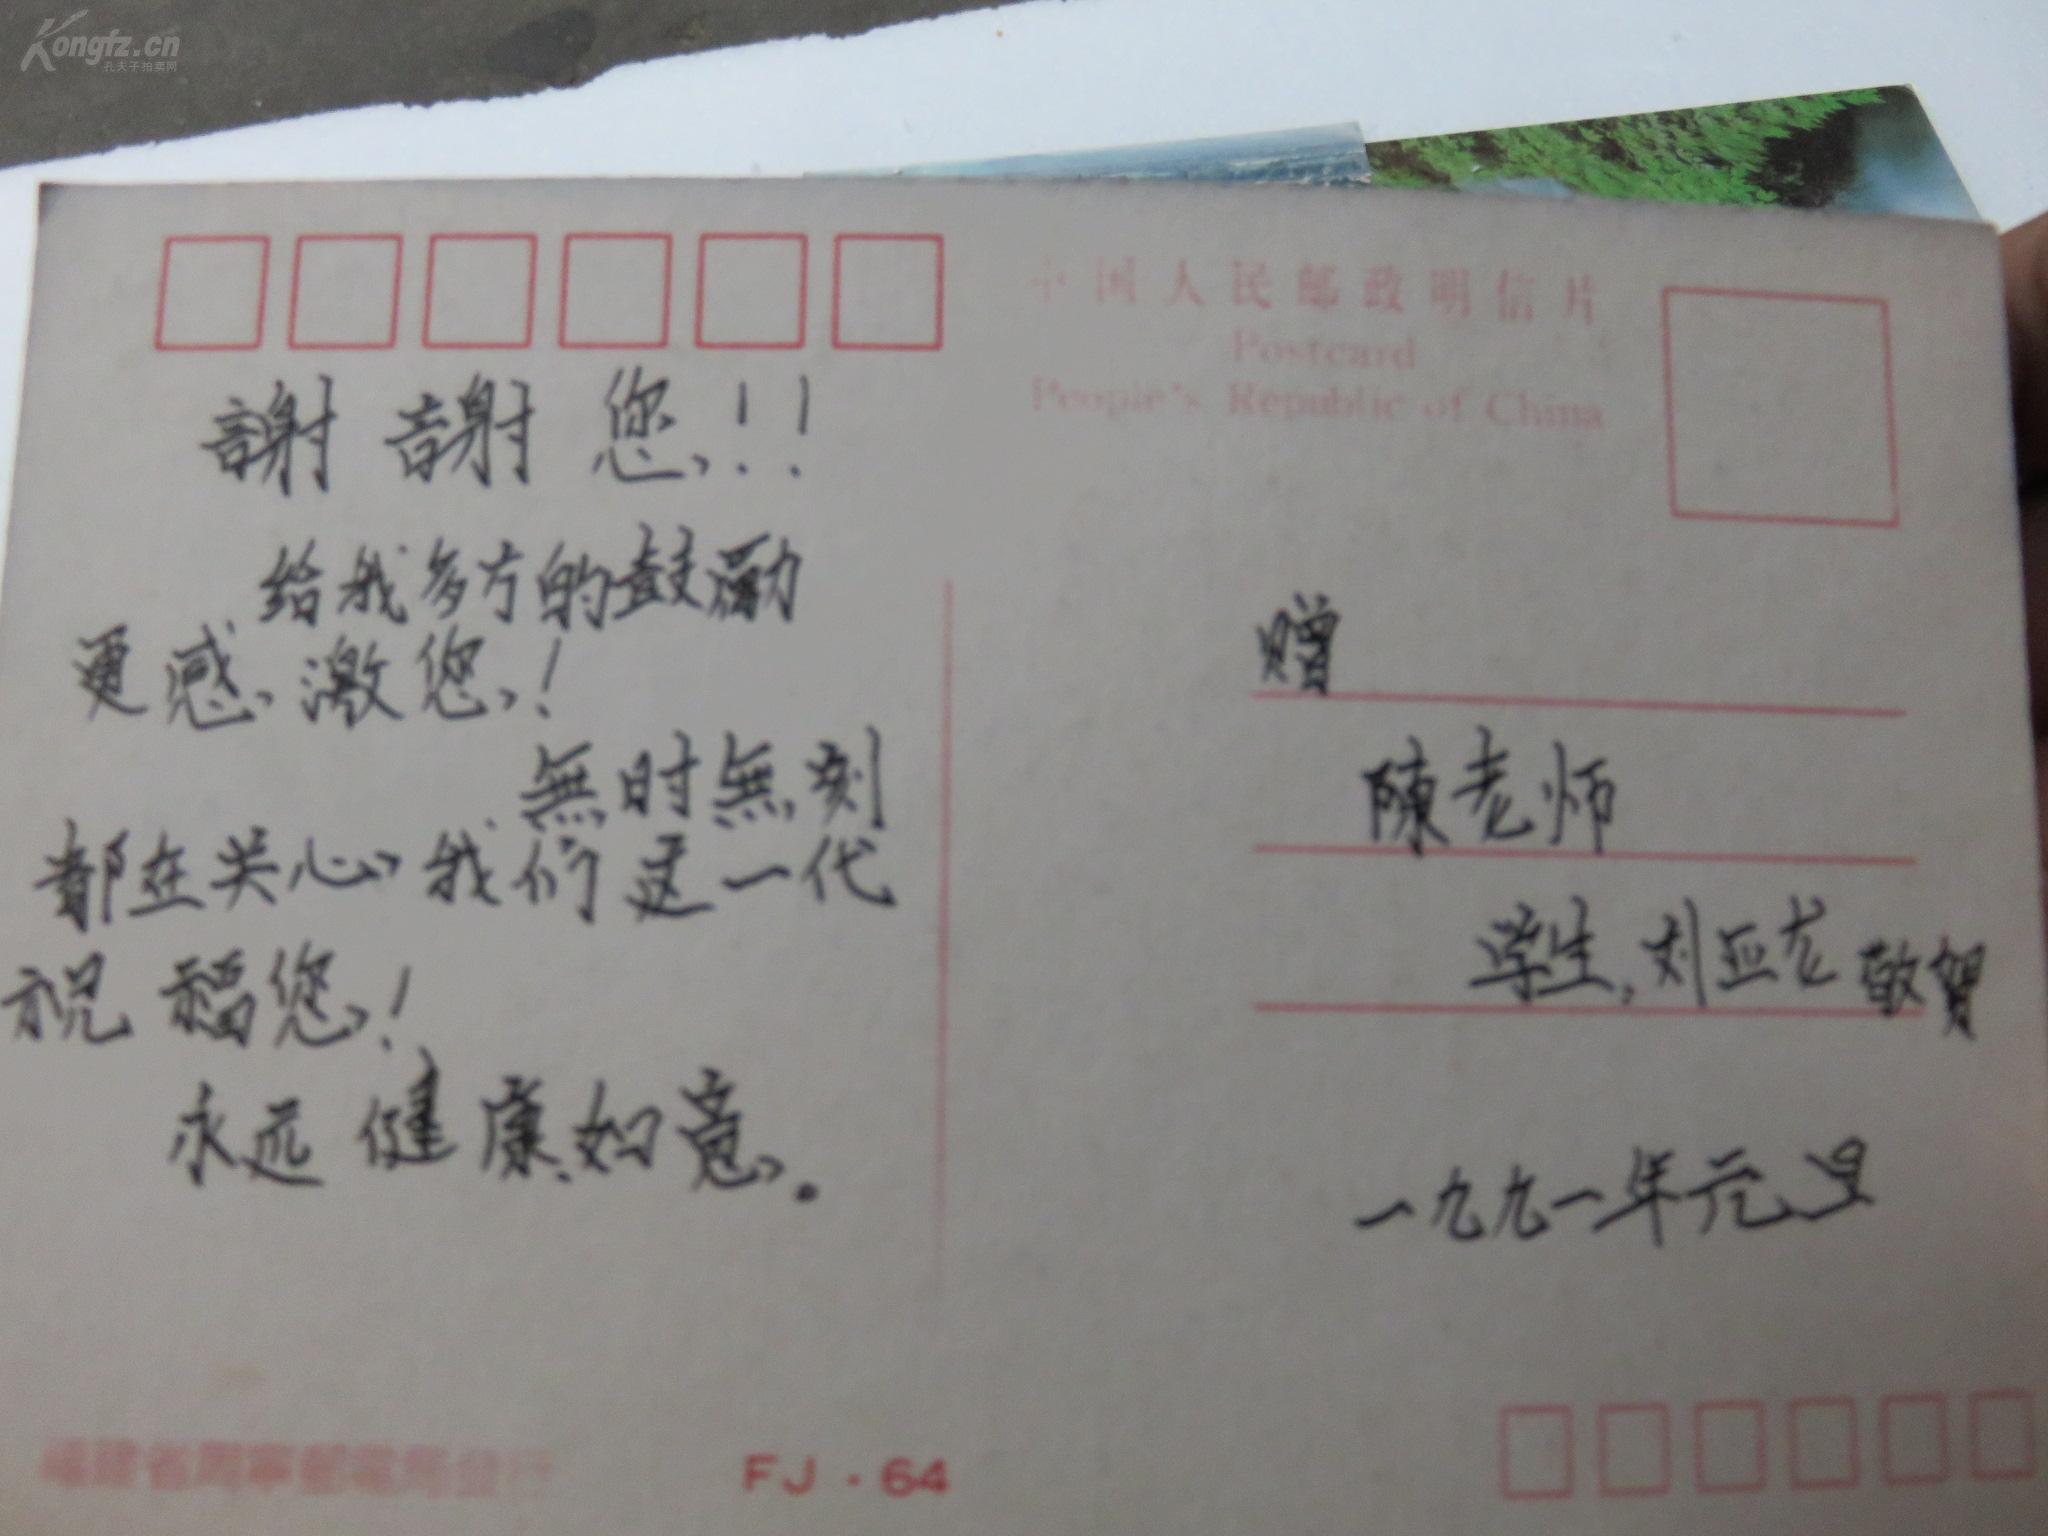 Kongfz.cn
孔夫子拍卖网
中国人民邮政明信片
Postcard
People's Republic of China
謝謝您!!
给我多方的鼓励
更感激您!
無时無刻
都在关心我们这一代
祝福您!
永远健康如意.
赠
陳老师
学生,刘亚龙敬贺
一九九一年元旦
福建省周寧郵電局发行
FJ·64